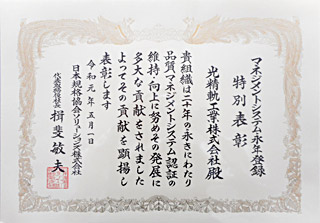 マネジメントシステム永年登録
特別表彰
光精軌工業株式会社殿
貴組織は二十年の永きにわたり
品質マネジメントシステム認証の
維持・向上に努めその発展に
多大な貢献をされました
よってその貢献を顕揚し
表彰します
令和元年五月一日
日本規格協会ソリューションズ株式会社
代表取締役社長 揖斐敏夫